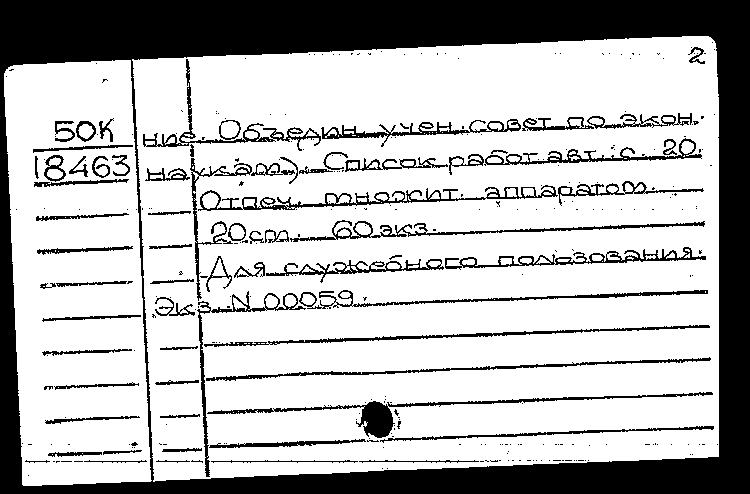 2
50К
18463
ние. Объедин. учен. совет по экон.
наукам). Список работ авт.: с. 20.
Отпеч. множит. аппаратом.
20 cm. 60 экз.
Для служебного пользования.
Экз. N 00059.